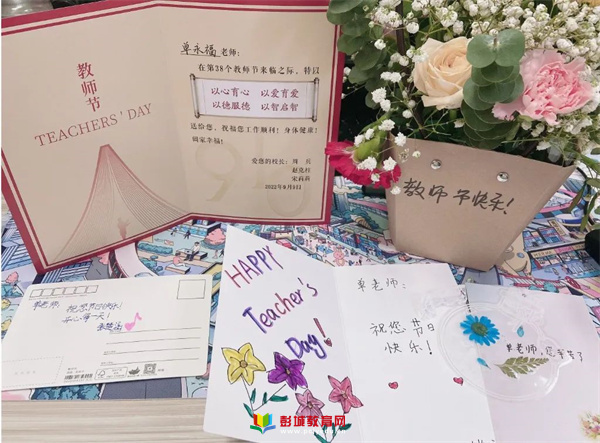 教师节
TEACHERS' DAY
单永福 老师:
在第38个教师节来临之际,特以
以心育心 以爱育爱
以德服德 以智启智
送给您,祝福您工作顺利!身体健康!
阖家幸福!
爱您的校长:
2022年9月9日
教师节快乐!
祝您节日快乐!
开心每一天!
HAPPY
Teacher's
Day!
单老师:
祝您节日
快乐!
单老师,您辛苦了
彭城教育网